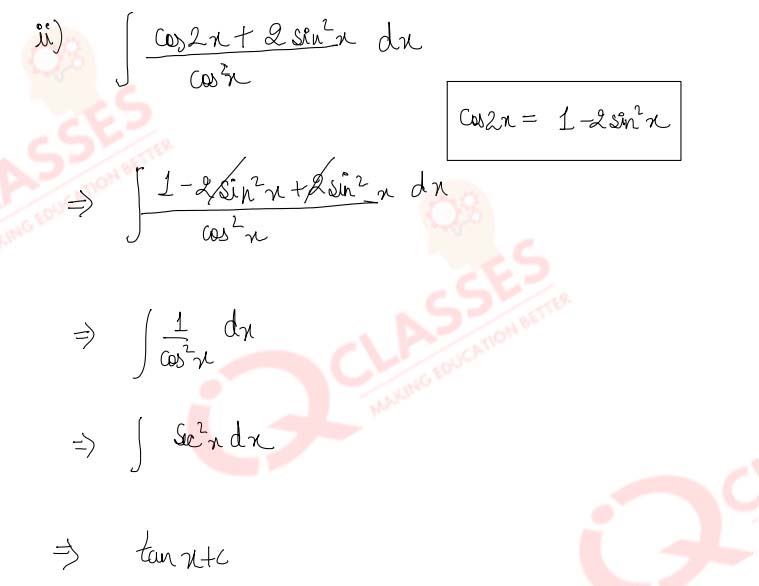 ii) ∫ (cos2x + 2 sin²x) / cos²x dx
cos2x = 1 - 2 sin²x
⇒ ∫ (1 - 2 sin²x + 2 sin²x) / cos²x dx
⇒ ∫ 1 / cos²x dx
⇒ ∫ sec²x dx
⇒ tan x + c
ASSES
KING EDUCATION BETTER
CLASSES
MAKING EDUCATION BETTER
CL